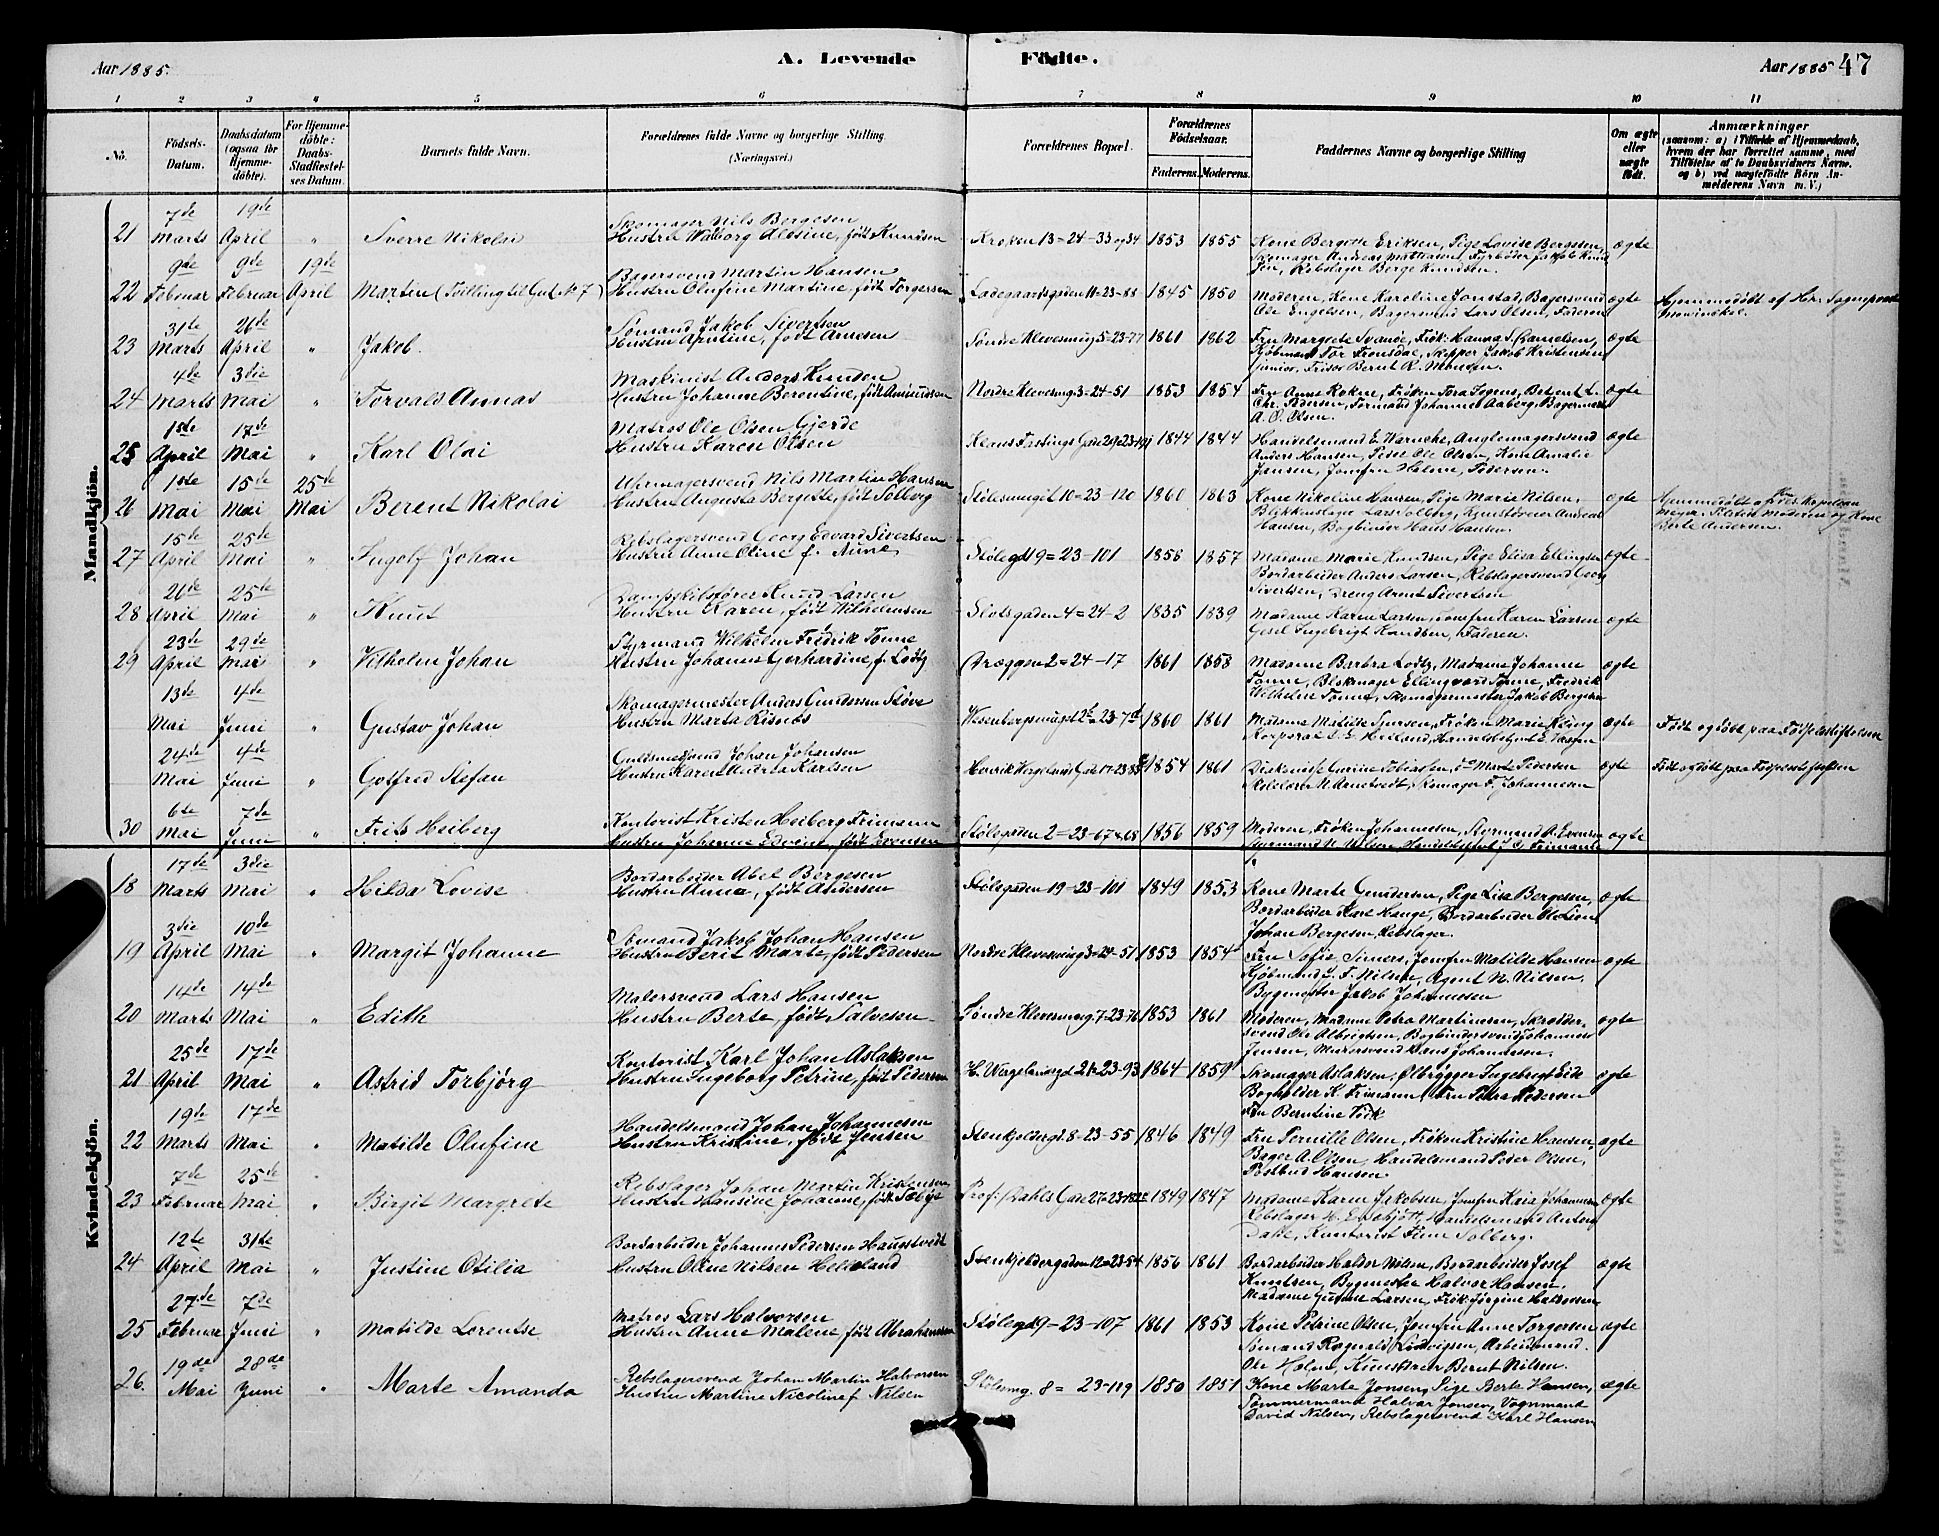 Aar 1885.
A. Levende Födte.
Aar 1885 47
1 2 3 4 5 6 7 8 9 10 11
No.
Födsels-Datum.
Daabsdatum (ogsaa for Hjemme-döbte).
For Hjemme-döbte: Daabs-Stadfæstel-ses Datum.
Barnets fulde Navn.
Forældrenes fulde Navne og borgerlige Stilling (Næringsvei.)
Forældrenes Bopæl.
Forældrenes Fødselsaar.
Faderens. Moderens.
Faddernes Navne og borgerlige Stilling
Om ægte eller uægte födt.
Anmærkninger
(saasom: a) i Tilfælde af Hjemmedaab, hvem der har forrettet samme, med Tilföielse af to Daabsvidners Navne, og b) ved uægtefödte Börn An-melderens Navn m. V.)
Mandkjön.
7de 19de Skomager Nils Bergesen
21 Marts April " Sverre Nikolai Hustru Walborg Alesine, født Knudsen Kroken 13=24-33 og 34 1853 1855 Kone Bergete Eriksen, Pige Lovise Bergesen, ægte
Skomager Andreas Mathiasen, Fyrbøder Jakob Knudsen, Rebslager Berge Knudsen.
9de 9de 19de Bagersvend Martin Hansen
22 Februar Februar April Martin (Tvilling til Gut No 7) Hustru Olufine Martine, født Torgersen Ladegaardsgaden 11-23-88 1845 1850 Moderen, Kone Karoline Jonstad, Bagersvend ægte Hjemmedøbt af Hr. Sognepræst
Ole Engelsen, Bagersvend Lars Olsen, Faderen
31te 26de Sømand Jakob Sivertsen
23 Marts April " Jakob. født Arnesen Søndre Klevesmug 5-23-77 1861 1862 Fru Margrete Svanøe, Frøk. Hanna S. Danielsen, ægte
Kjøbmand Tor Fronsdal, Skipper Jakob Kristensen junior, Frisør Bernt R. Monsen.
4de 3die Maskinist Anders Knudsen
24 Marts Mai " Torvald Annas Hustru Johanne Berentine, født Amundsen Nordre Klevesmug 3-24-51 1853 1854 Fru Anne Kokne, Frøken Tora Fogens, Betjent L. ægte
Chr. Pedersen, Formand Johannes Aaberg, Bagermester A. O. Olsen.
1ste 17de Matros Ole Olsen Gjerde
25 April Mai " Karl Olai Hustru Karen Olsen Klaus Fastings Gade 29-23-191 1844 1844 Handelsmand E. Wernche, Anglemagersvend ægte
Anders Hansen, Peder Ole Olsen, Kone Amalie Jansen, Jomfru Halene Pedersen.
1ste 15de 25de Uhrmagersvend Nils Martin Hansen
26 Mai Mai Mai Berent Nikolai Hustru Augusta Bergitte, født Solberg Stølesmuget 10-23-120 1860 1863 Kone Nikoline Hansen, Pige Marie Nilsen, ægte
Blikkenslager Lars Solberg, Kjendtsfører Andreas Hansen, Bogbinder Hans Hansen.
Hjemmedøbt af Hr. res. Kapelan Meyer. Tilstede Moderen og Kone Berte Andersen.
15de 25de Rebslagersvend Georg Edvard Sivertsen
27 April Mai " Ingolf Johan Hustru Anne Oline f. Aune Stølegd 19=23-101 1856 1857 Madame Marie Knudsen, Pige Elisa Ellingsen ægte
Bordarbeider Anders Larsen, Rebslagersvend Georg Sivertsen, Dreng Arent Sivertsen
26de 25de Dampskibsfører Knud Larsen
28 April Mai " Knut Hustru Karen, født Wilhelmsen Slotsgaden 4=24-2 1835 1839 Madame Karen Larsen, Jomfru Karen Larsen ægte
Gesel Ingebrigt Knudsen, Faderen.
23de 29de Styrmand Wilhelm Fredrik Tonne
29 April Mai " Vilhelm Johan Hustru Johanne Gerhardine, f. Lodtz Dræggen 2=24-17 1861 1858 Madame Barbra Lodtz, Madame Johanne ægte
Tonne, Blokmager Ellingvard Tonne, Fredrik Wilhelm Tonne, Skomagermester Jakob Bergesen
13de 4de Skomagermester Anders Gundersen Støve
Mai Juni " Gustav Johan Hustru Marta Risnes Wesenbergsmuget 2b-23-7d 1860 1861 Madame Matilde Syvertsen, Frøken Marie Kling ægte Født og døbt paa Fødselsstiftelsen
Korporal L. E. Heiland, Handelsbetjent E. Larsen
24de 4de Guldsmedsvend Johan Johansen
Mai Juni " Gotfred Stefan Hustru Karen Andrea Karlsen Henrik Wergelands Gade 17-23-83 1854 1861 Diakonisse Gurine Tobiassen, do Marte Pedersen ægte Født og døbt paa Fødselsstiftelsen
Skolelærer N. Arnetvedt, Skomager F. Johannesen
6te 7de Kontorist Kristen Heiberg Frimann
30 Mai Juni " Frits Heiberg Hustru Johanne Edvine, født Evensen Stølegaden 2=23-67 & 68 1856 1859 Moderen, Frøken Johannesen, Styrmand A. Evensen ægte
Styrmand N. Nilsen, Frimann
Kvindekjön.
17de 3die Bordarbeider Abel Bergesen
18 Marts Mai " Hilda Lovise Hustru Anna, født Andersen Stølegaden 19-23-101 1849 1853 Kone Marte Gundersen, Pige Lisa Bergesen, ægte
Bordarbeider Karl Hauge, Bordarbeider Ole Lien, Johan Bergesen, Rebslager.
3die 10de Sømand Jakob Johan Hansen
19 April Mai " Margit Johanne Hustru Berit Marte, født Pedersen Nordre Klevesmug 3=24-51 1853 1854 Fru Sofie Simers, Jomfru Matilde Hansen ægte
Kjøbmand L. F. Nilsen, Agent N. Nilsen, Bygmester Jakob Johannesen
14de 14de Malersvend Lars Hansen
20 Marts Mai " Edith Hustru Berte, født Salvesen Søndre Klevesmug. 7-23-76 1853 1861 Moderen, Madame Petra Martinesen, Skrædder- ægte
svend Ole Albrigtsen, Bogbindersvend Johannes Jensen, Murersvend Hans Johannesen.
25de 17de Kontorist Karl Johan Aslaksen
21 April Mai " Astrid Torbjørg Hustru Ingeborg Petrine, født Pedersen H. Wergelandsgd 21=23-93 1864 1859 Skomager Aslaksen, Ølbrygger Ingebrigt Eide ægte
Bogholder K. Frimann, Fru Petra Pedersen Fru Berntine Fodt
19de 17de Handelsmand Johan Johannesen
22 Marts Mai " Matilde Olufine Hustru Kristine, født Jensen Stenkjeldergd. 8-23-55 1846 1849 Fru Pernille Olsen, Frøken Kristine Hansen, ægte
Bager A. Olsen, Handelsmand Peder Olsen, Postbud Hansen
7de 25de Rebslager Johan Martin Kristensen
23 Februar Mai " Birgit Margrete Hustru Hansine Johanne, født Sæbye Prof. Dahls Gade 27-23-182 1849 1847 Madame Karen Jakobsen, Jomfru Kaia Johannesen ægte
Rebslager H. Handelsmand Anders Dahl, Kontorist Finn Solberg.
12te 31te Bordarbeider Johannes Pedersen Haustvedt
24 April Mai " Justine Otilia Hustru Oline Nilsen Helland Stenkjeldergaden 12=23-54 1856 1861 Bordarbeider Haldor Nilsen, Bordarbeider Josef ægte
Knudsen, Bygmester Halvor Hansen, Madame Gurine Larsen, Frøk. Jørgine Halvorsen
27de 7de Matros Lars Halvorsen
25 Februar Juni " Matilde Lorentse Hustru Anne Malene, født Abrahamsen Stølegd 9=23-107 1861 1853 Kone Petrine Olsen, Jomfru Anne Torgersen ægte
Sømand Ragnald Lodvigsen, Arbeidsmand Ole Holm, Kunstdreier Bernt Nilsen.
19de 28de Rebslagersvend Johan Martin Halvorsen
26. Mai Juni " Marte Amanda Hustru Martine Nicoline f. Nilsen Stølesmg. 8= 23-119 1850 1851 Kone Marte Jonsen, Pige Berte Hansen, ægte
Tømmermand Halvar Jonsen, Vognmand David Nilsen, Rebslagersvend Karl Hansen